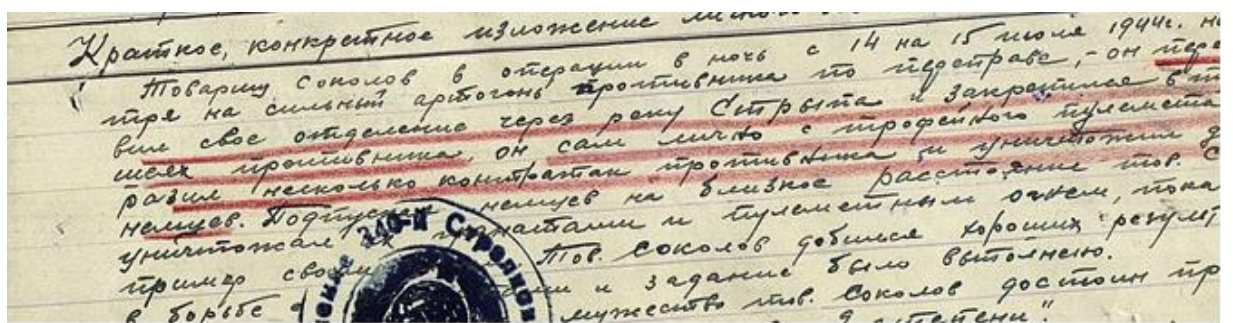 Краткое, конкретное изложение личного
Товарищ Соколов в операции в ночь с 14 на 15 июля 1944г. не
тря на сильный артогонь противника по переправе, - он пере
вил свое отделение через реку Стрыпа и закрепился в
шеях противника, он сам лично с трофейного пулемета
разил несколько контратак противника и уничтожил
немцев. Подпуская немцев на близкое расстояние тов. С
уничтожал их гранатами и пулеметным огнем, пока
пример своим Тов. Соколов добился хороших резуль
и задание было выполнено.
в борьбе мужество тов. Соколов достоин пр
степени".
340-й Стрелков